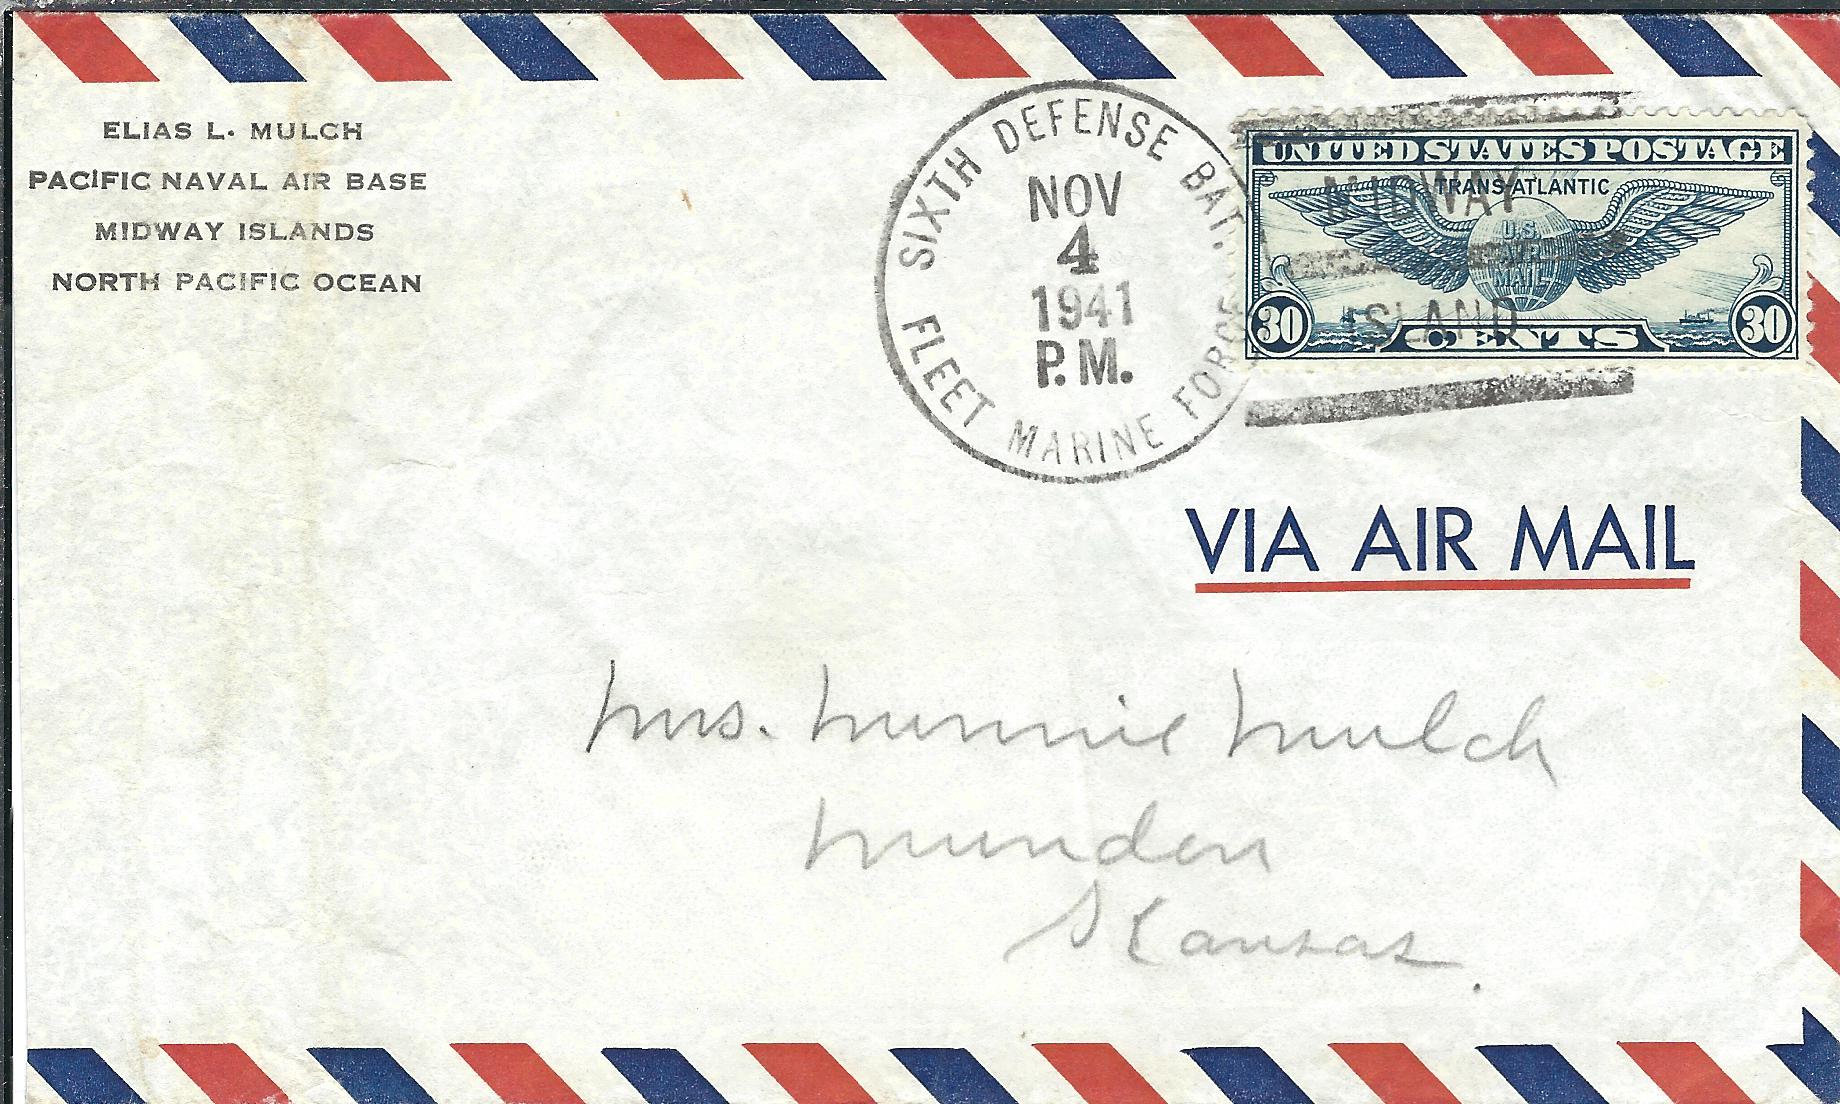 ELIAS L. MULCH
PACIFIC NAVAL AIR BASE
MIDWAY ISLANDS
NORTH PACIFIC OCEAN
SIXTH DEFENSE BAT.
NOV
4
1941
P.M.
FLEET MARINE FORCE
UNITED STATES POSTAGE
TRANS-ATLANTIC
MIDWAY
U.S.
AIR
MAIL
ISLAND
30 CENTS 30
VIA AIR MAIL
Mrs. Minnie Mulch
Munden
Kansas.